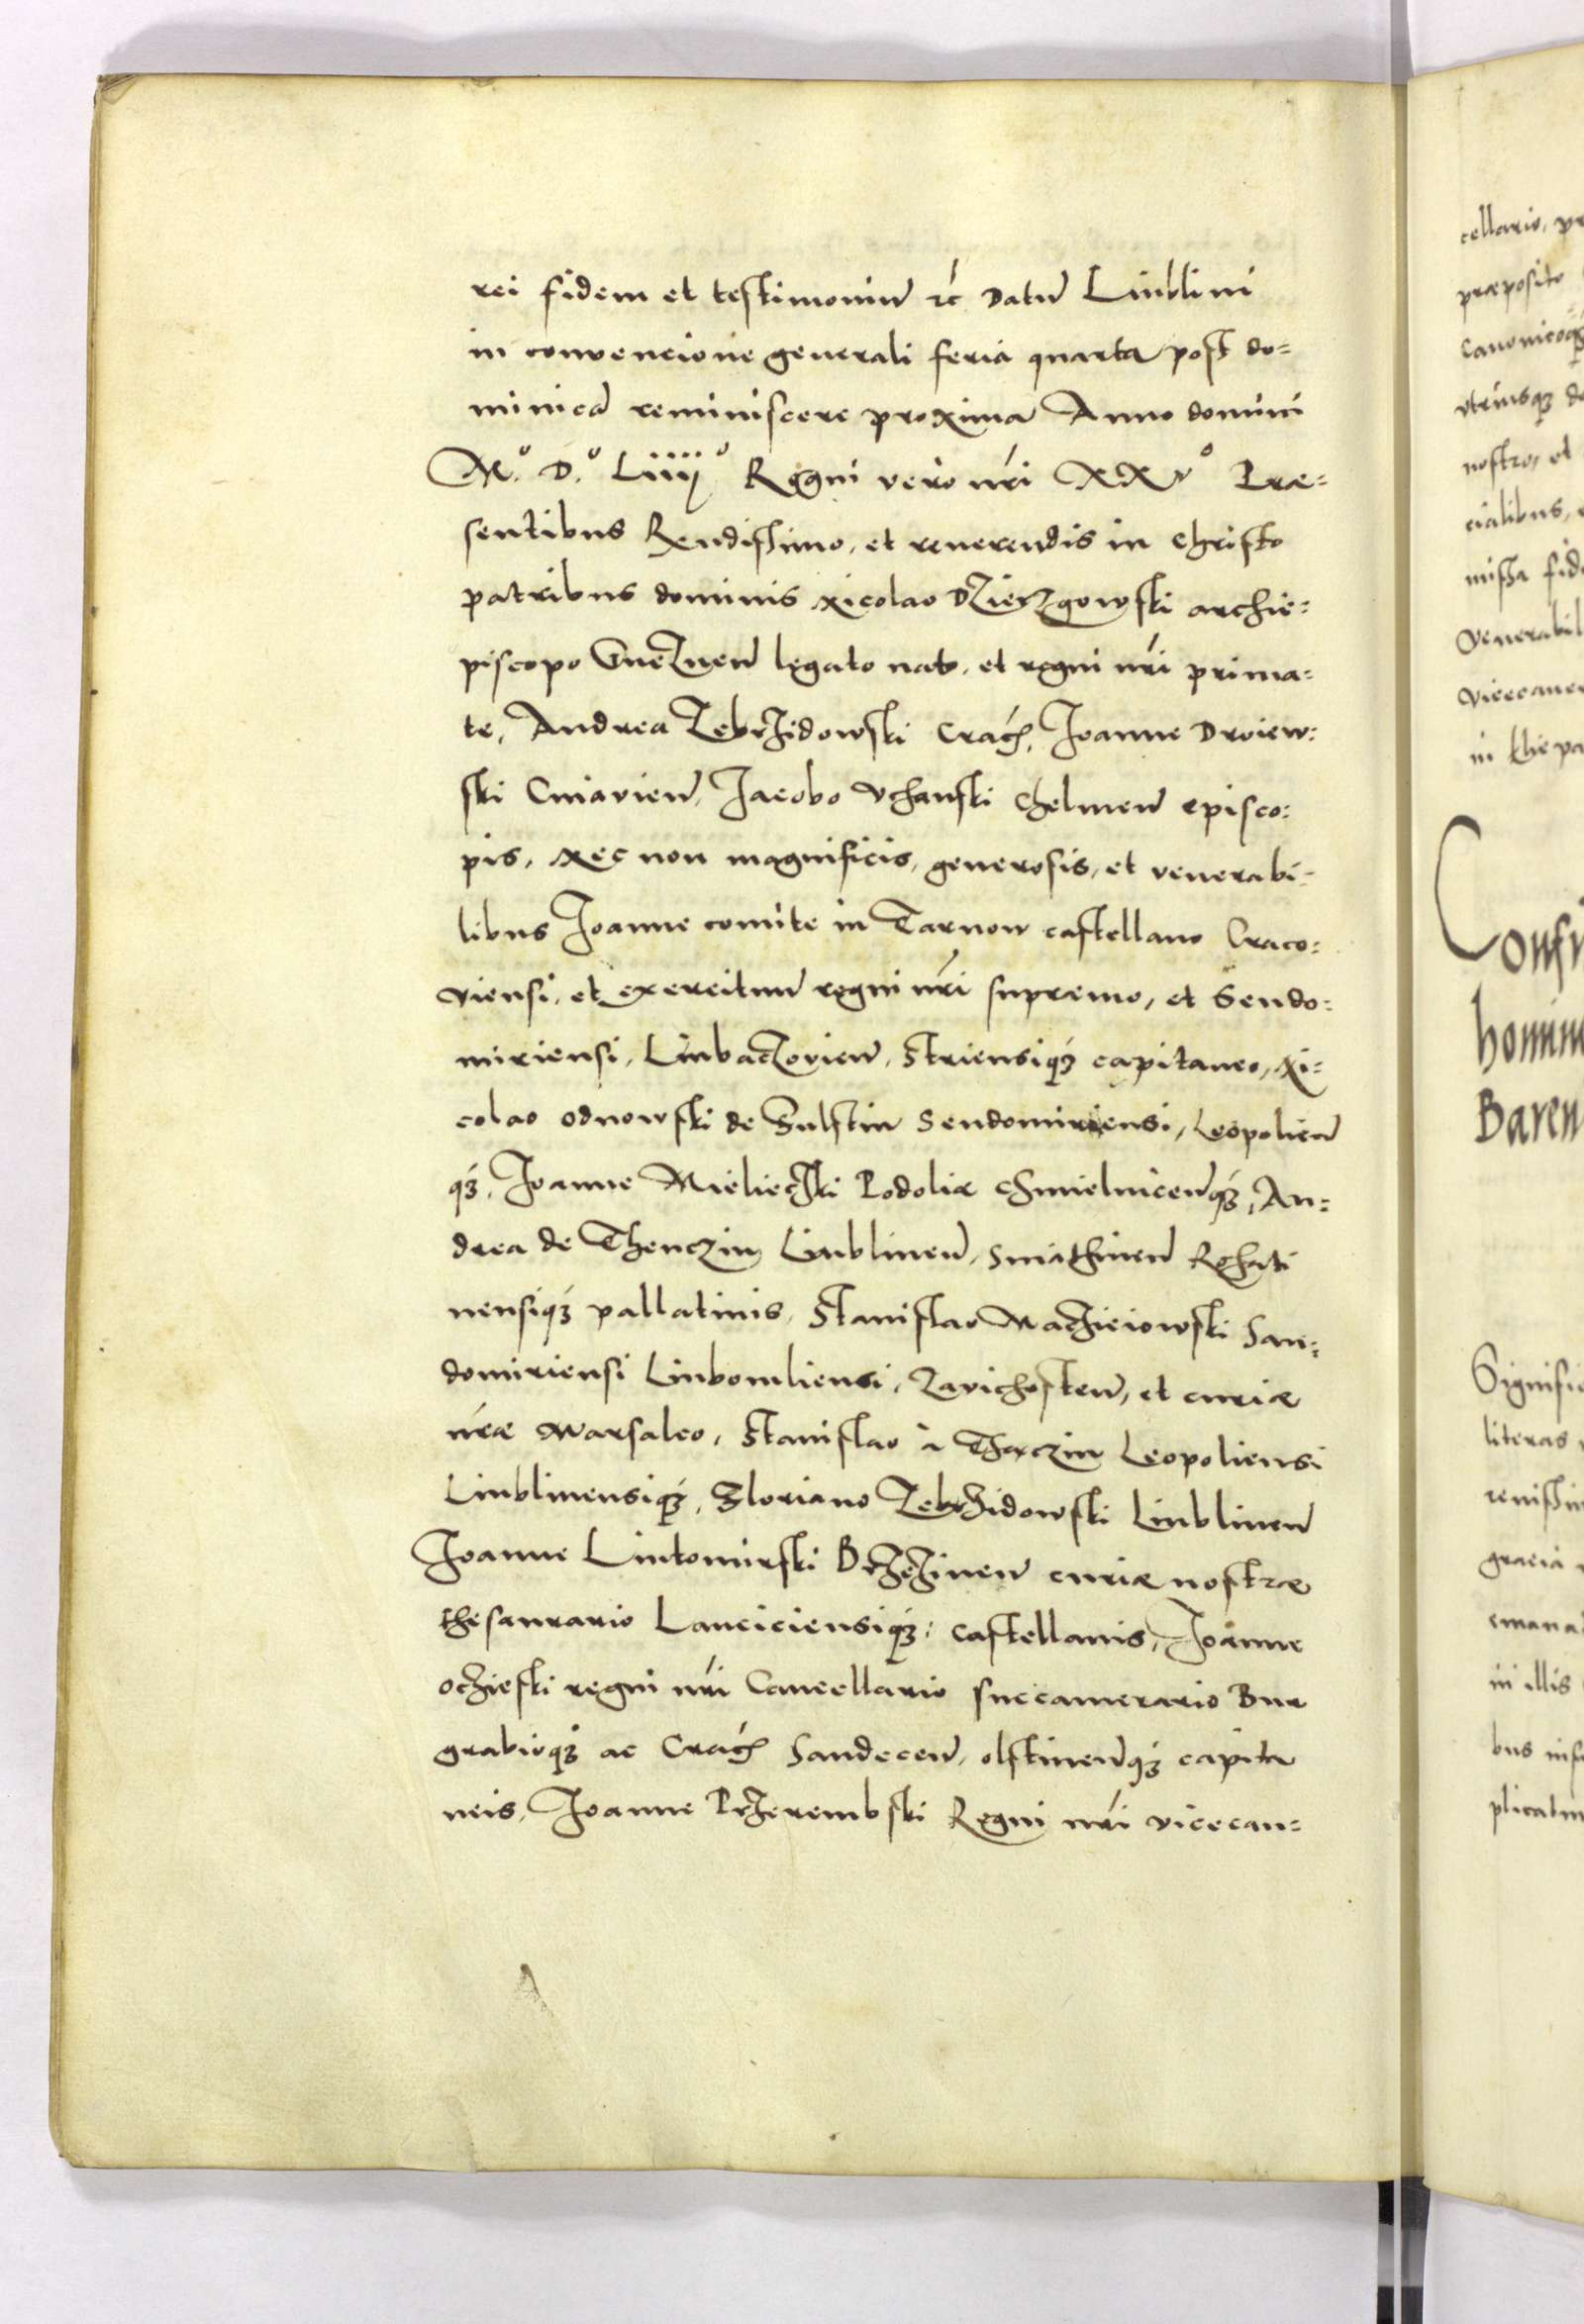 rei fidem et testimoniu̅ ꝛc̓ Datu̅ Liublini
in convencione generali feria quarta post do=
minica̅ reminiscere proxima Anno domini
M.º D.º Liiijº Regni vero nr̅i XXvº Præ=
sentibus Rendissimo, et reverendis in Christo
patribus dominis Nicolao Dzierzgowski archie=
piscopo Gneznen̅ legato nato, et regni nr̅i prima=
te, Andrea Zebrzidowski Crac̅, Joanne Droiew:
ski Cuiavien̅, Jacobo Vchanski Chelmen̅ episco:
pis, Nec non magnificis, generosis, et venerabi=
libus Joanne comite in Tarnow castellano Craco:
viensi, et exercituu̅ regni nr̅i supremo, et Sendo:
miriensi, Liubaczovien̅, Striensiqꝫ capitaneo, Ni:
colao Odnowski de Fulstin Sendomiriensi, Leopolien̅
qꝫ, Joanne Mielieczki Podoliæ Chmielnicen̅qꝫ, An=
drea de Thenczin Liublinen̅, Sniathinen̅ Rohati
nensiqꝫ pallatinis, Stanislao Macziejowski San=
domiriensi Liubomliensi, Zavichosten̅, et curiæ
nr̅æ Marsalco, Stanislao à Thęczin Leopoliensi
Liublinensiqꝫ, Floriano Zebrzidowski Liublinen̅
Joanne Liutomirski Brzezinen̅ curiæ nostræ
thesaurario Lanciciensiqꝫ: castellanis, Joanne
Oczieski regni nr̅i Cancellario succamerario Bur
grabioqꝫ ac Crac̅ Sandecen̅, olstinen̅qꝫ capita
neis, Joanne Przerembski Regni nr̅i vicecan=
cellario, pr
præposito
canonicoqꝫ
vtriusqꝫ de
nostro, et
cialibus,
missa fid
Venerabil
vicecance
in khiepa
Confi
homin
Baren
Signifi
literas
renissim
gracia
emana
in illis
bus inf
plicatu